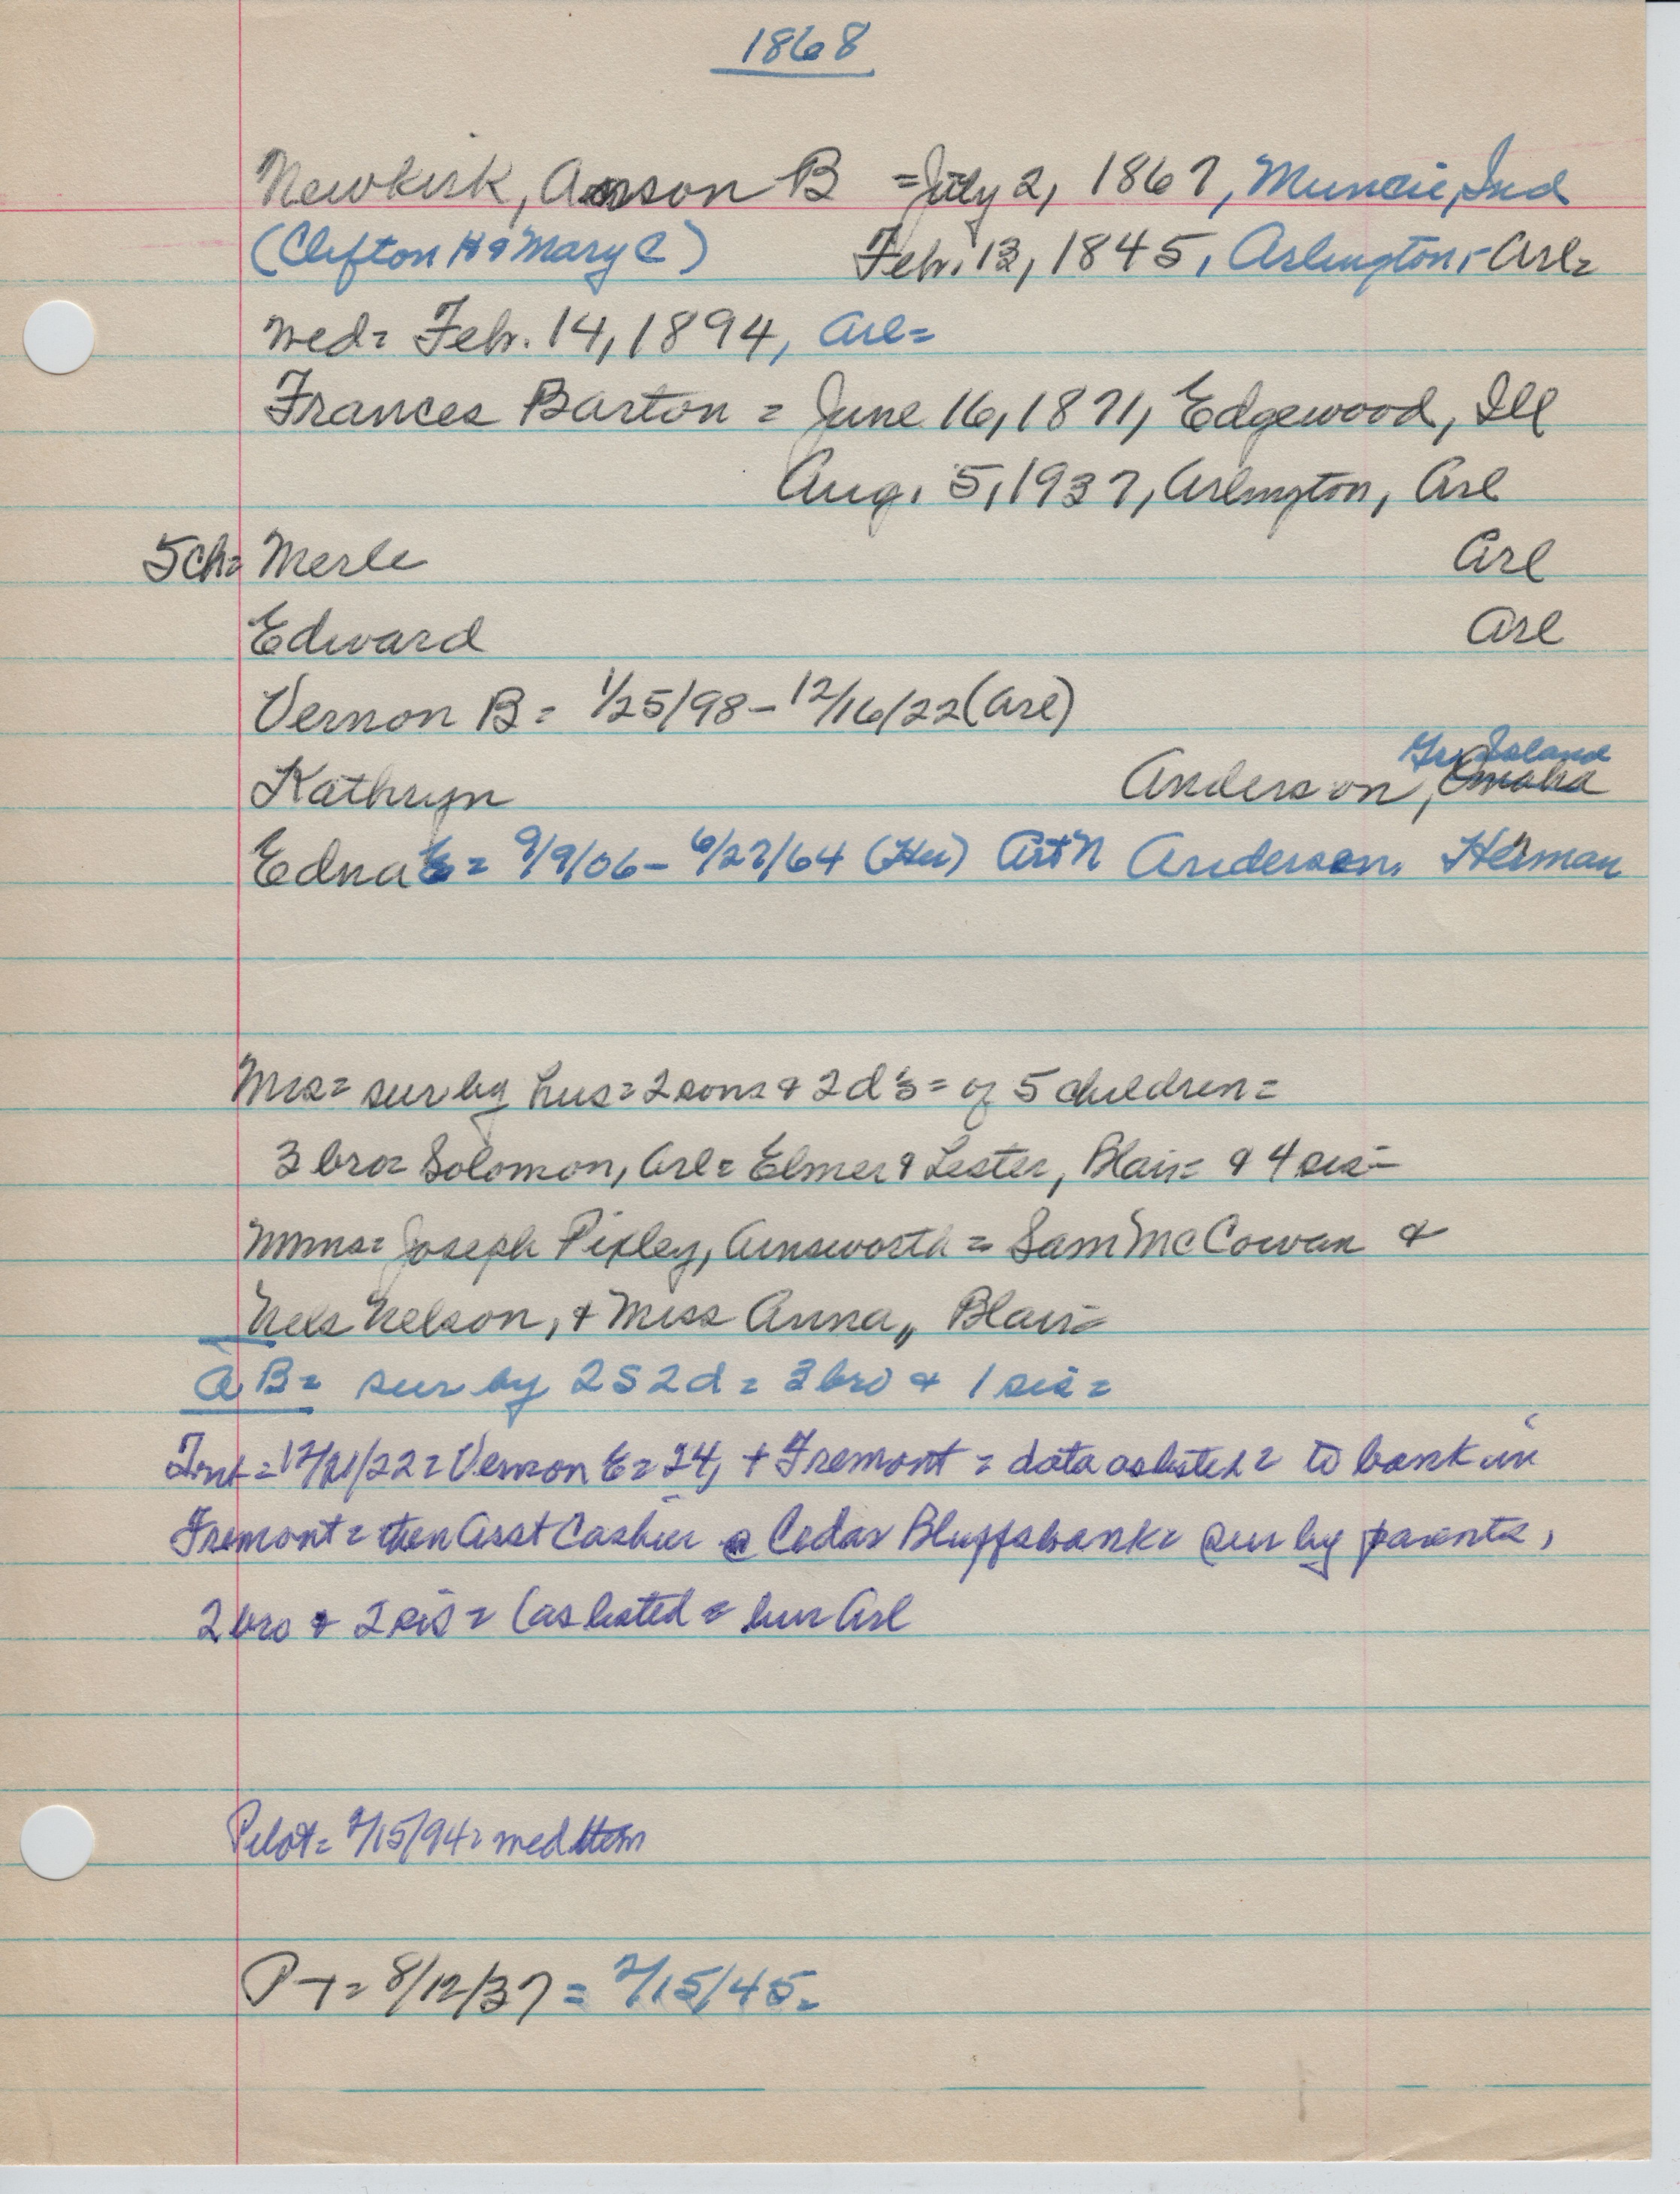 1868
Newkirk, Anson B = July 2, 1867, Muncie, Ind
(Clifton H & Mary C) Feb. 13, 1845, Arlington, - Arl=
Wed= Feb. 14, 1894, Arl=
Frances Barton = June 16, 1871, Edgewood, Ill
Aug. 5, 1937, Arlington, Arl
5 ch= Merle Arl
Edward Arl
Vernon B = 1/25/98 - 12/16/22 (Arl)
Gr Island
Kathryn Anderson, Omaha
Edna E = 9/9/06 - 6/27/64 (Her) Art N Anderson, Herman
Mrs= sur by hus= 2 sons & 2 d's = of 5 children =
3 bro= Solomon, Arl= Elmer & Lester, Blair= & 4 sis=
Mmes= Joseph Pixley, Ainsworth = Sam McCowan &
Nels Nelson, & Miss Anna,, Blair=
A B= sur by 2 S 2 d = 3 bro & 1 sis =
= 12/21/22 = Vernon E = 24, + Fremont = data as listed = to bank in
Fremont = then Asst Cashier @ Cedar Bluffs bank= sur by parents,
2 bro & 2 sis = (as listed = bur Arl
Pilot = 2/15/94 = wed
P T = 8/12/37 = 2/15/45 =